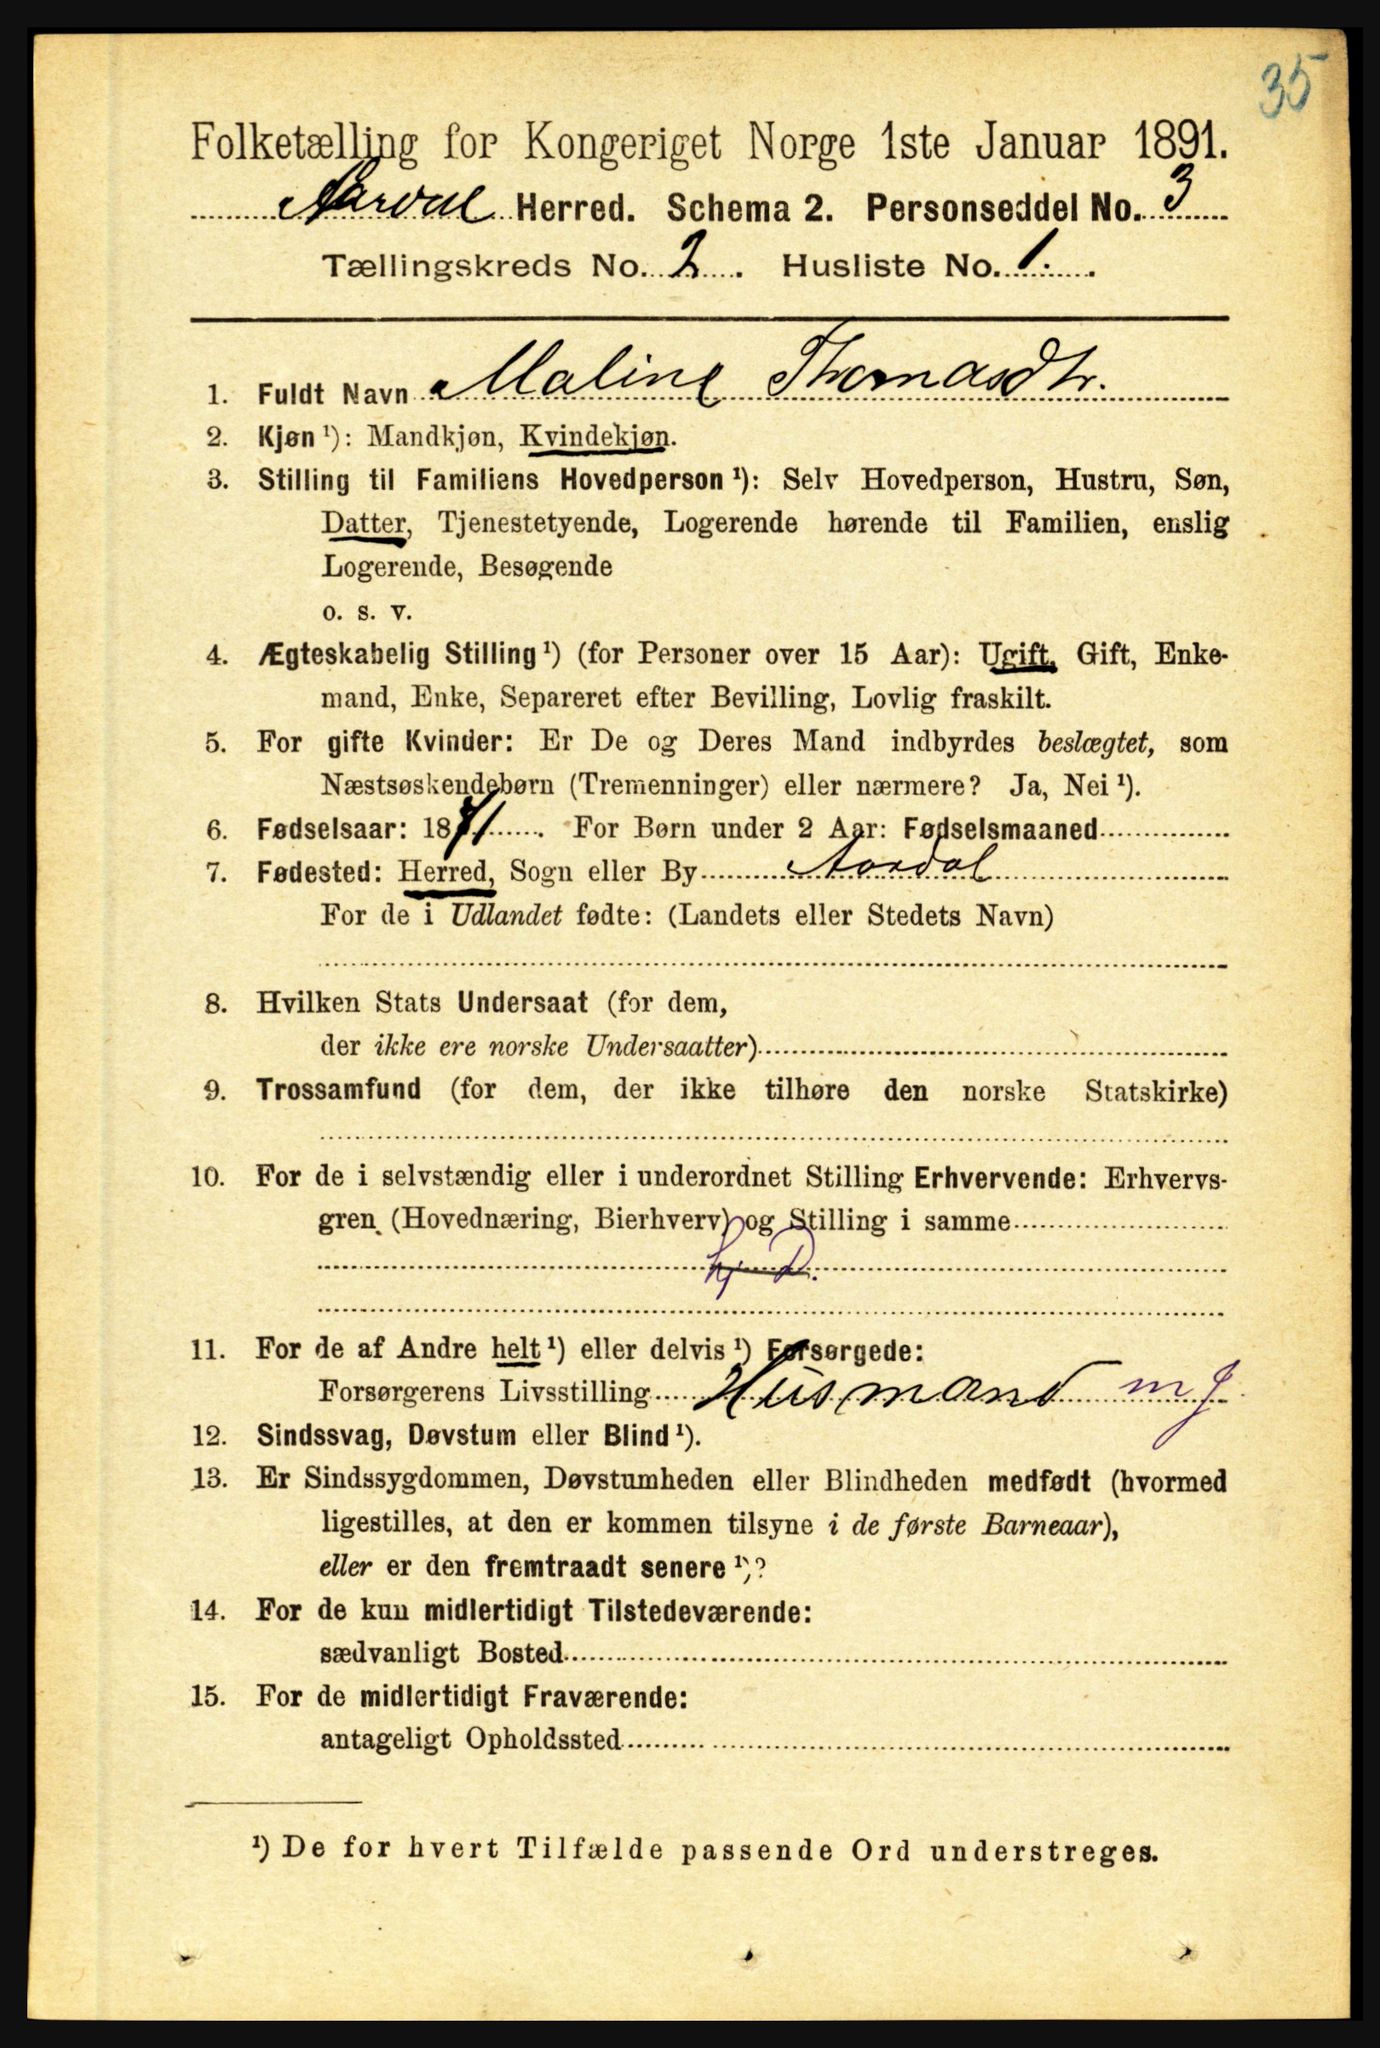 35
Folketælling for Kongeriget Norge 1ste Januar 1891.
Aardal Herred. Schema 2. Personseddel No. 3
Tællingskreds No. 2. Husliste No. 1.
1. Fuldt Navn Maline Thomasdtr.
2. Kjøn ¹): Mandkjøn, Kvindekjøn.
3. Stilling til Familiens Hovedperson ¹): Selv Hovedperson, Hustru, Søn,
Datter, Tjenestetyende, Logerende hørende til Familien, enslig
Logerende, Besøgende
o. s. v.
4. Ægteskabelig Stilling ¹) (for Personer over 15 Aar): Ugift, Gift, Enke-
mand, Enke, Separeret efter Bevilling, Lovlig fraskilt.
5. For gifte Kvinder: Er De og Deres Mand indbyrdes beslægtet, som
Næstsøskendebørn (Tremenninger) eller nærmere? Ja, Nei ¹).
6. Fødselsaar: 1871. For Børn under 2 Aar: Fødselsmaaned
7. Fødested: Herred, Sogn eller By Aardal
For de i Udlandet fødte: (Landets eller Stedets Navn)
8. Hvilken Stats Undersaat (for dem,
der ikke ere norske Undersaatter)
9. Trossamfund (for dem, der ikke tilhøre den norske Statskirke)
10. For de i selvstændig eller i underordnet Stilling Erhvervende: Erhvervs-
gren (Hovednæring, Bierhverv) og Stilling i samme
hj D.
11. For de af Andre helt ¹) eller delvis ¹) Forsørgede:
Forsørgerens Livsstilling Husmand m J
12. Sindssvag, Døvstum eller Blind ¹).
13. Er Sindssygdommen, Døvstumheden eller Blindheden medfødt (hvormed
ligestilles, at den er kommen tilsyne i de første Barneaar),
eller er den fremtraadt senere ¹)?
14. For de kun midlertidigt Tilstedeværende:
sædvanligt Bosted
15. For de midlertidigt Fraværende:
antageligt Opholdssted
¹) De for hvert Tilfælde passende Ord understreges.